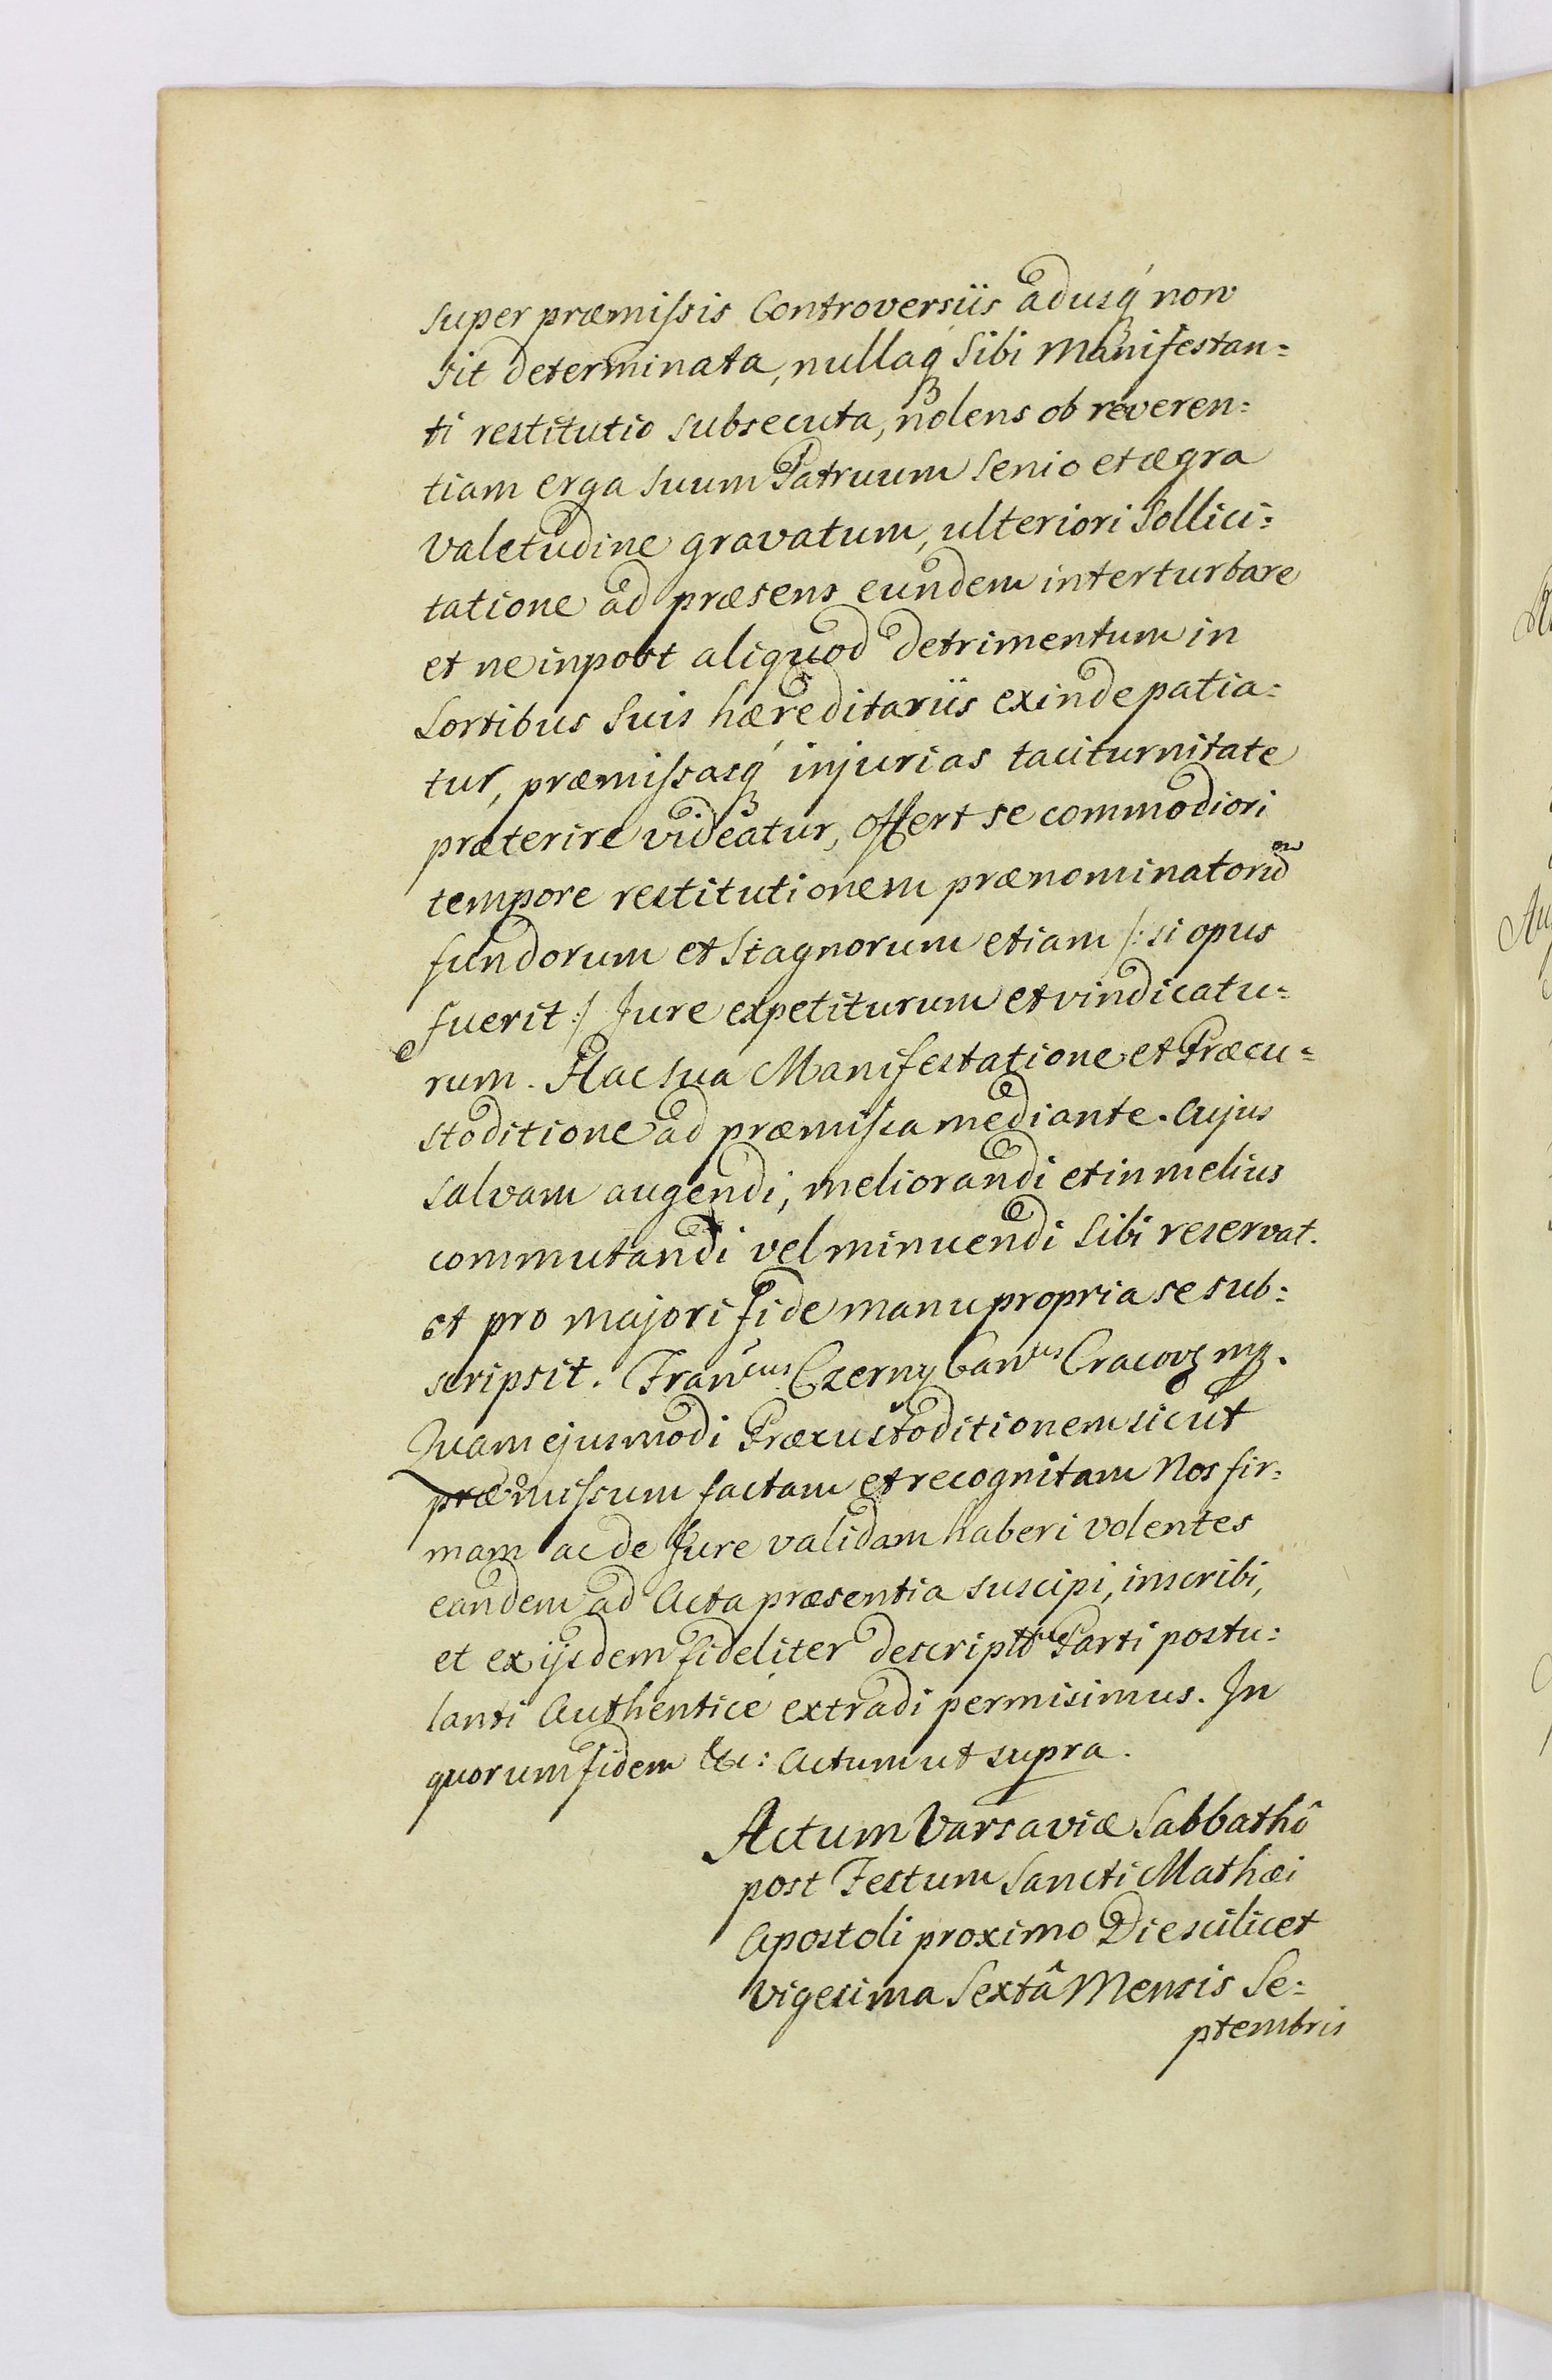 super præmissis Controversiis adusq́ꝫ non
sit determinata, nullaq́ꝫ Sibi Manifestan=
ti restitutio subsecuta, nolens ob reveren=
tiam erga suum Patruum senio et ægra
valetudine gravatum, ulteriori Sollici=
tatione ad præsens eundem interturbare
et ne inpost aliquod detrimentum in
Sortibus Suis hæreditariis exinde patia=
tur, præmissasq́ꝫ injurias taciturnitate
præterire videatur, offert se commodiori
tempore restitutionem prænominatorũ
fundorum et Stagnorum etiam /: si opus
fuerit :/ Jure expetiturum et vindicatu=
rum. Hac sua Manifestatione et Præcu=
stoditione ad præmissa mediante. Cujus
salvam augendi, meliorandi et in melius
commutandi vel minuendi Sibi reservat.
et pro majori fide manu propria se sub=
scripsit. Franᶜᵘˢ Czerny Canᶜᵘˢ Cracovꝫ mꝑ.
Quam ejusmodi Præcustoditionem sicut
præmissum factam et recognitam Nos fir=
mam ac de Jure validam haberi volentes
eandem ad Acta præsentia suscipi, inscribi,
et ex ijsdem fideliter descriptã Parti postu=
lanti Authenticé extradi permisimus. In
quorum fidem &c: Actum ut supra.
Actum Varsaviæ Sabbathô
post Festum Sancti Mathæi
Apostoli proximo Die scilicet
vigesima Sextâ Mensis Se=
ptembris